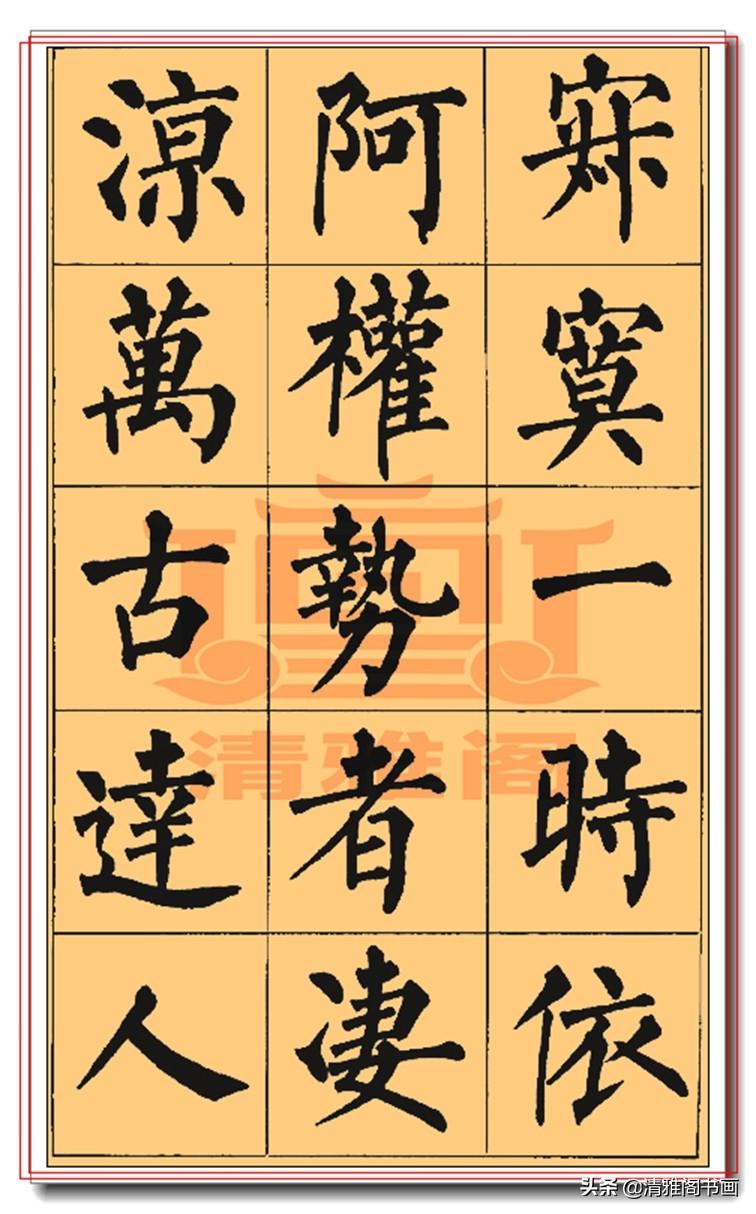 寂寞一時依
阿權勢者淒
涼萬古達人
清雅阁
头条 @清雅阁书画